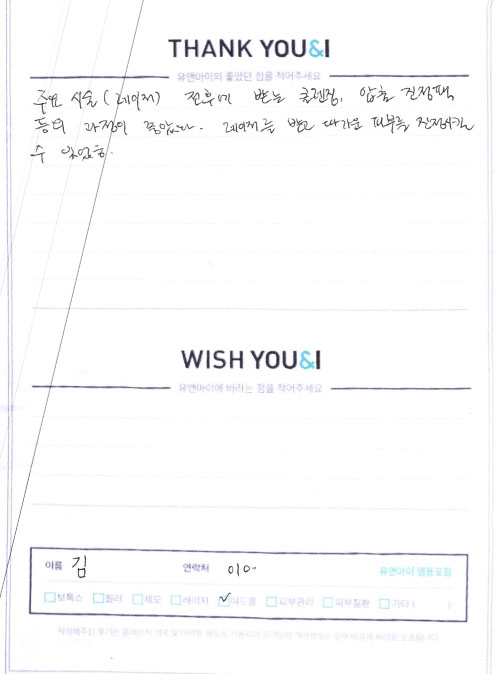 THANK YOU&I
유앤아이의 좋았던 점을 적어주세요
주요 시술(레이저) 전후에 받는 클렌징, 압출 진정팩
등의 과정이 좋았다. 레이저를 받고 따가운 피부를 진정시킬
수 있었음.
WISH YOU&I
유앤아이에 바라는 점을 적어주세요
이름 김 연락처 010- 유앤아이 영등포점
보톡스 필러 제모 레이저 ✓여드름 피부관리 피부질환 기타 ( )
작성해주신 후기는 홈페이지 게재 및 마케팅 용도로 사용되며 고객님의 개인정보는 일부 비공개 처리로 보호됩니다.